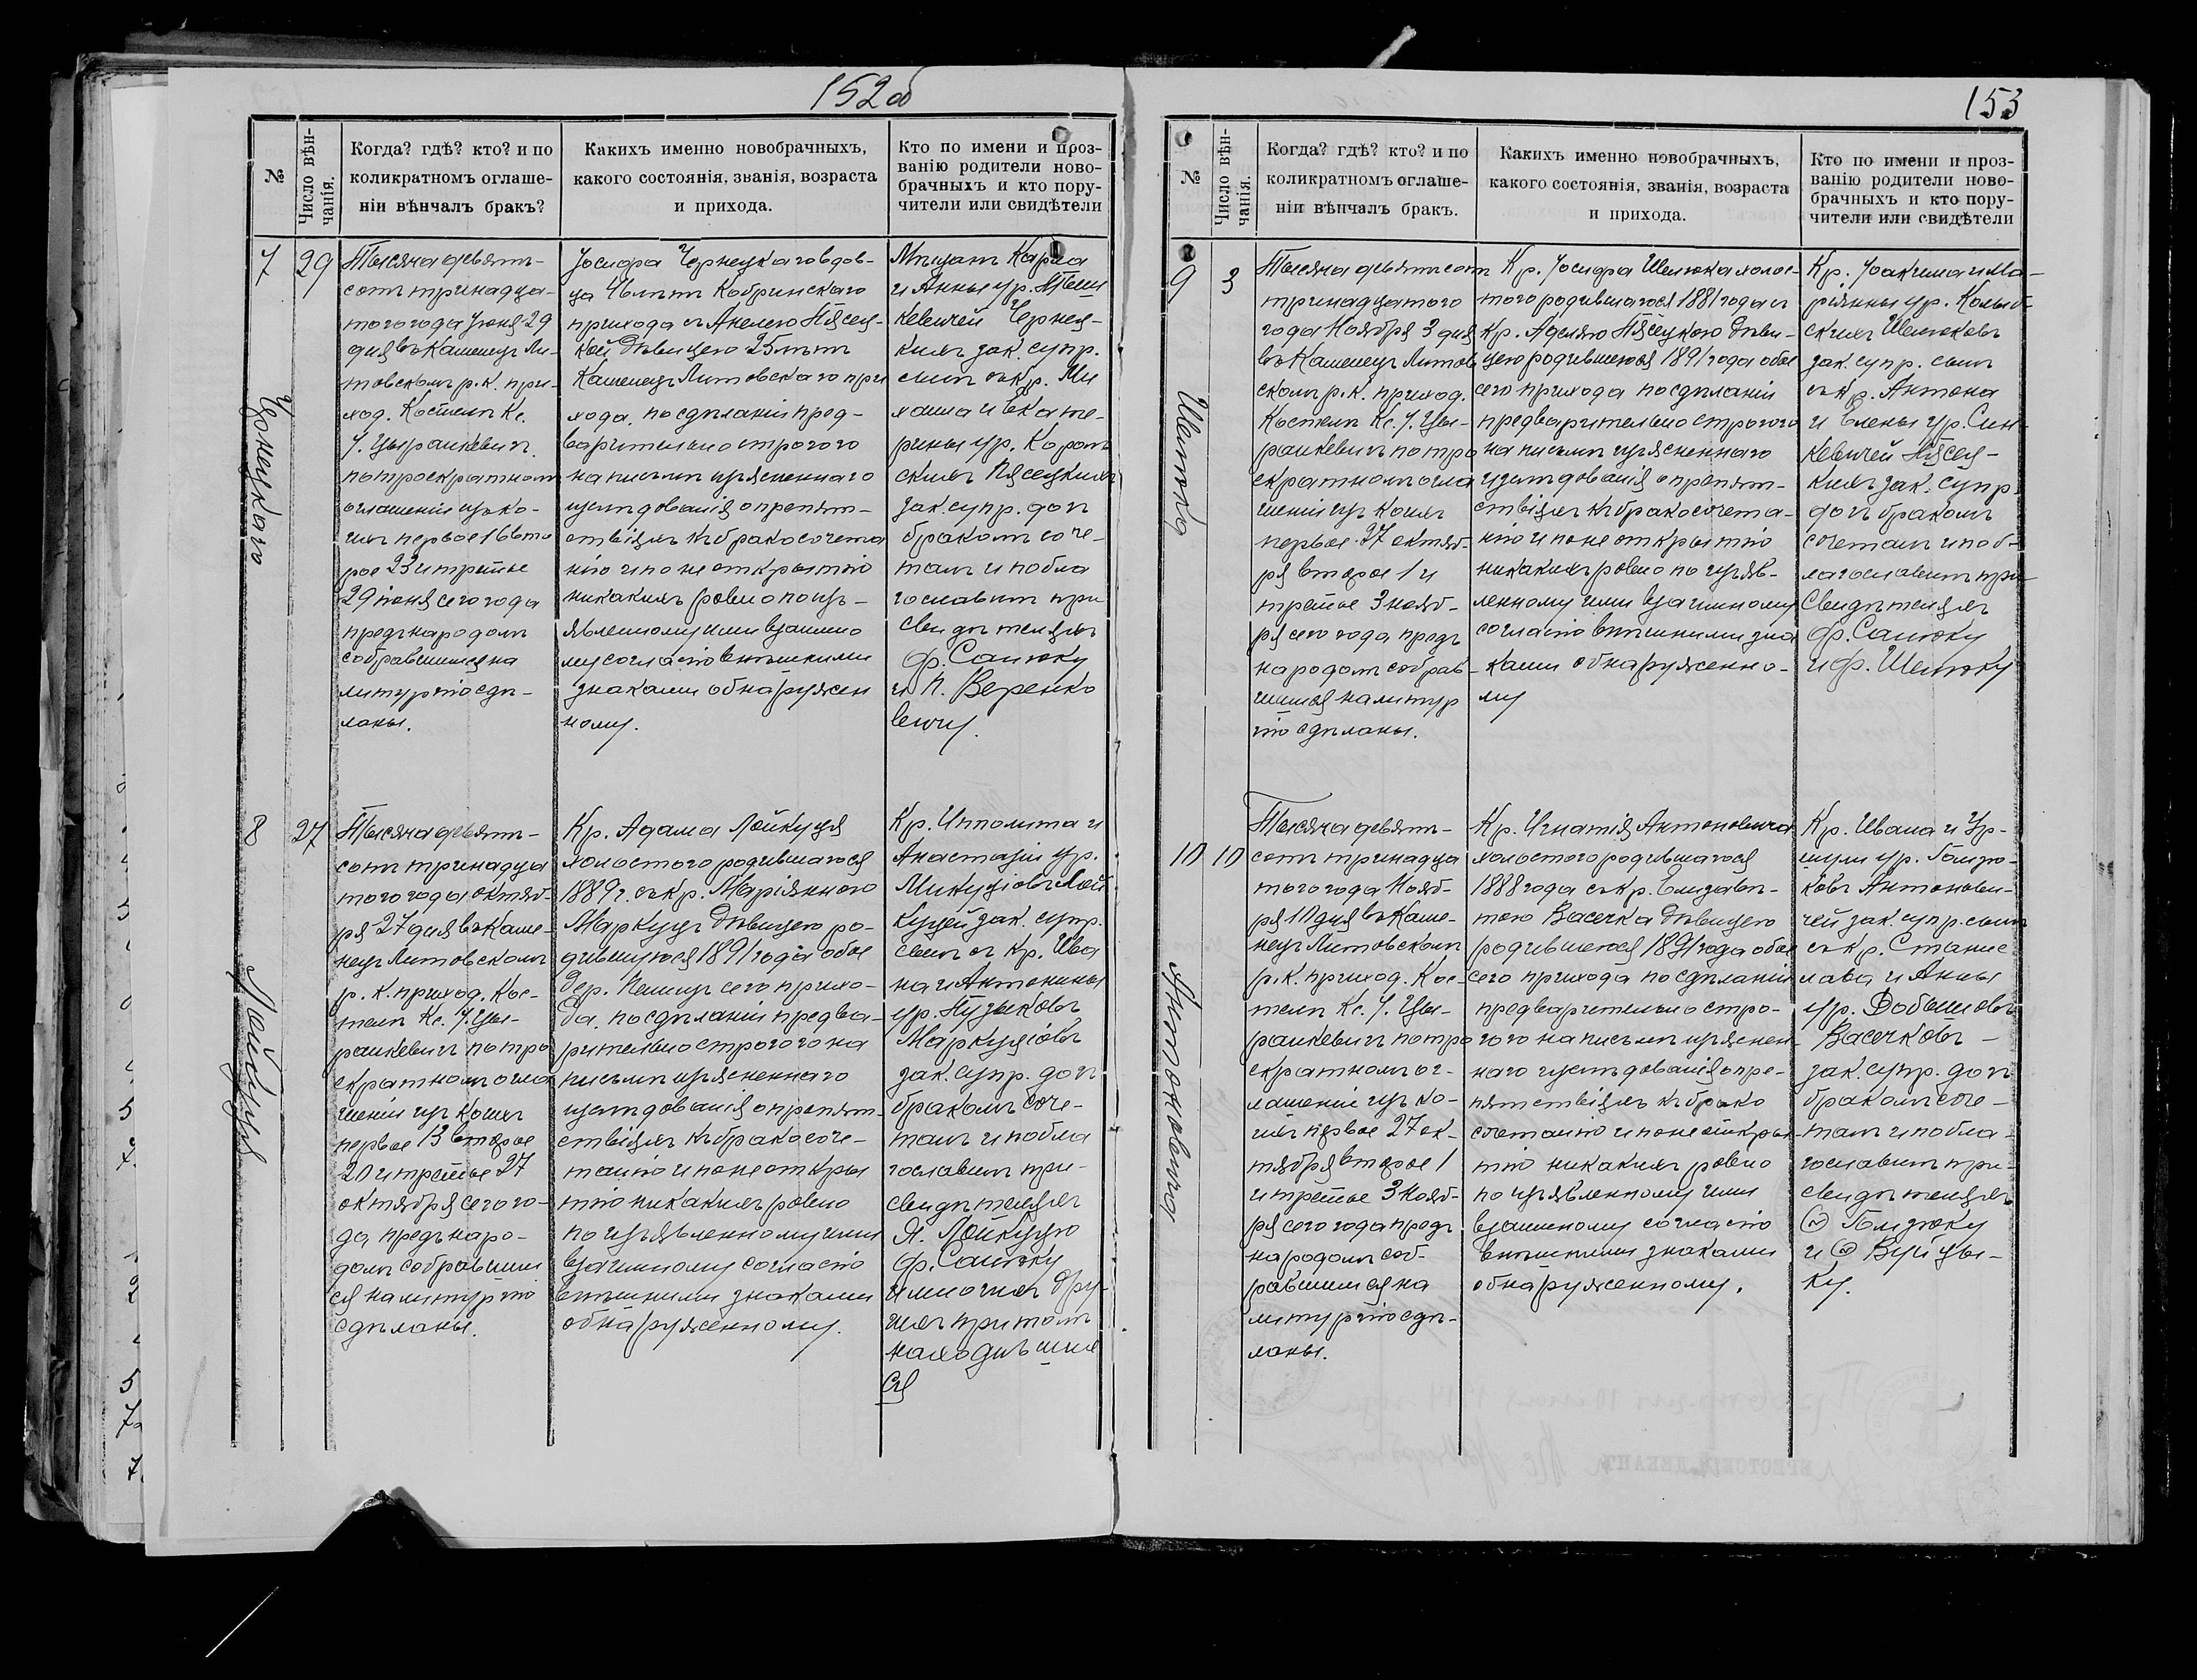 152об
№
Число вѣн-
чанія.
Когда? гдѣ? кто? и по
коликратномъ оглаше-
ніи вѣнчалъ бракъ?
Какихъ именно новобрачныхъ,
какого состоянія, званія, возраста
и прихода.
Кто по имени и проз-
ванію родители ново-
брачныхъ и кто пору-
чители или свидѣтели
7
29
Чернецкаго
Тысяча девять-
сотъ тринадца-
того года Іюня 29
дня въ Каменец Ли-
товскомъ р. к. при-
ход. Костелѣ Кс.
І. Цыранкевич
по троекратном
оглашеніи изъ ко-
ихъ первое 16 вто
рое 23 и третье
29 іюня сего года
предъ народомъ
собравшимся на
литургію сдѣ-
ланы.
Іосифа Чернецкаго вдов-
ца 46 лѣтъ Кобринскаго
прихода съ Анелею Пясец-
кой дѣвицею 25 лѣтъ
Каменец Литовскаго при
хода, по сдѣланіи пред-
варительно строгого
на письмѣ изъясненнаго
изслѣдованія о препят-
ствіяхъ къ бракосочета
нію и по не открытію
никакихъ ровно по изъ-
явленному ими взаимно
му согласію внѣшними
знаками обнаружен
ному.
Мѣщанъ Карла
и Анны ур.
кевичей Чернец-
кихъ зак. супр.
сынъ съ кр. Ми
хаила и Екате-
рины ур.
скихъ Пясецкихъ
зак. супр. доч
бракомъ соче-
талъ и побла
гословилъ при
свидѣтеляхъ
Ф. Санюку
и П. Веренко
вичу.
8
27
Лойкуця
Тысяча девять-
сотъ тринадца
того года октяб-
ря 27 дня въ Каме-
нец Литовскомъ
р. к. приход. Кос-
телѣ Кс. І. Цы-
ранкевичъ по тро
екратном огла
шеніи изъ коихъ
первое 13 второе
20 и третье 27
октября сего го-
да предъ наро-
домъ собравшим
ся на литургію
сдѣланы.
Кр. Адама Лойкуця
холостого родившагося
1889 г. съ кр. Маріянною
Маркуцъ дѣвицею ро-
дившуюся 1891 года обое
дер. сего прихо-
да, по сдѣланіи предва-
рительно строгого на
письмѣ изъясненнаго
изслѣдованія о препят-
ствіяхъ къ бракосоче-
танію и по не откры
тію никакихъ ровно
по изъявленному ими
взаимному согласію
внѣшними знаками
обнаруженному.
Кр. Ипполита и
Анастазіи ур.
Микуціовъ Лой
куцей зак. супр.
сынъ съ кр. Ива
на и Антонины
ур. Пузыковъ
Маркуціовъ
зак. супр. доч
бракомъ соче-
талъ и побла
гословилъ при-
свидѣтеляхъ
А. Лойкуцю
Ф. Санюку
и многихъ дру-
гихъ при томъ
находившихъ
ся
153
№
Число вѣн-
чанія.
Когда? гдѣ? кто? и по
коликратномъ оглаше-
ніи вѣнчалъ бракъ.
Какихъ именно новобрачныхъ,
какого состоянія, званія, возраста
и прихода.
Кто по имени и проз-
ванію родители ново-
брачныхъ и кто пору-
чители или свидѣтели
9
3
Шенюка
Тысяча девятьсот
тринадцатого
года Ноября 3 дня
въ Каменец Литов
скомъ р. к. приход.
Костелѣ Кс. І. Цы-
ранкевичъ по тро
екратномъ огла
шеніи изъ коихъ
первое 27 октяб-
ря второе 1 и
третье 3 нояб-
ря сего года предъ
народом собрав-
шимся на литур
гію сдѣланы.
Кр. Іосифа Шенюка холос-
того родившагося 1881 года съ
Кр. Аделею Пясецкою дѣви-
цею родившеюся 1891 года обое
сего прихода по сдѣланіи
предварительно строгого
на письмѣ изъясненнаго
изслѣдованія о препят-
ствіяхъ къ бракосочета-
нію и по не открытію
никакихъ ровно по изъяв-
ленному ими взаимному
согласію внѣшними зна
ками обнаруженно-
му
Кр. Іоакима и Ма-
ріянны ур.
скихъ Шенюковъ
зак. супр. сынъ
съ кр. Антона
и Елены ур. Син-
кевичей Пясец-
кихъ зак. супр.
доч бракомъ
сочеталъ и поб-
лагословилъ при
свидѣтеляхъ
Ф. Санюку
и Ф. Шенюку
10
10
Антоновича
Тысяча девять-
сотъ тринадца
того года Нояб-
ря 10 дня въ Каме-
нец Литовскомъ
р. к. приход. Кос-
телѣ Кс. І. Цы-
ранкевичъ по тро
екратном ог-
лашеніи изъ ко-
ихъ первое 27 ок-
тября второе 1
и третье 3 нояб-
ря сего года предъ
народомъ соб-
равшимся на
литургію сдѣ-
ланы.
Кр. Игнатія Антоновича
холостого родившагося
1888 года съ кр. Елизаве-
тою Васечка дѣвицею
родившеюся 1891 года обое
сего прихода по сдѣланіи
предварительно стро-
гого на письмѣ изъяснен-
наго изслѣдованія о пре-
пятствіяхъ къ брако
сочетанію и по не откры-
тію никакихъ ровно
по изъявленному ими
взаимному согласію
внѣшними знаками
обнаруженному.
Кр. Ивана и Ур-
шули ур. Голизю-
ковъ Антонови-
чей зак. супр. сынъ
съ кр. Станис
лава и Анны
ур.
Васечковъ -
зак. супр. доч
бракомъ соче-
талъ и побла-
гословилъ при-
свидѣтеляхъ
и Ф. Вуйцы-
ку.